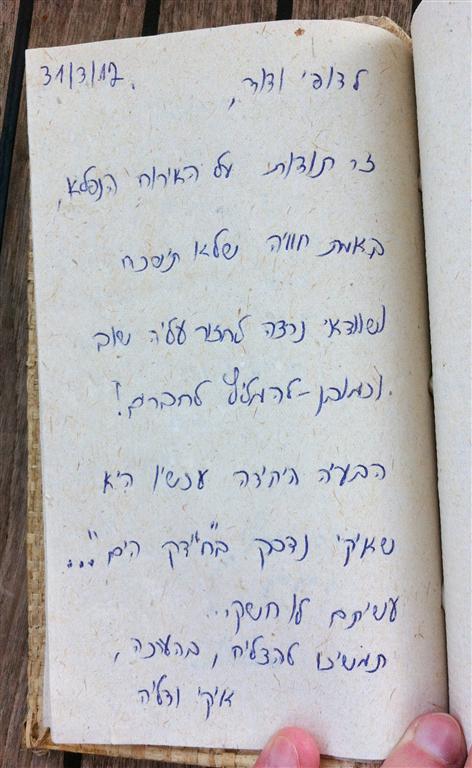 31/3/12
לדופי ודוד,
זר תודות על האירוח הנפלא,
באמת חוויה שלא תישכח
ושוודאי נרצה לחזור עליה שוב
וכמובן - להמליץ לחברים!
הבעיה היחידה עכשיו היא
שאיקי נדבק ב"חידק הים"...
עשיתם לו חשק...
תמשיכו להצליח, בהערכה,
איקי ודליה